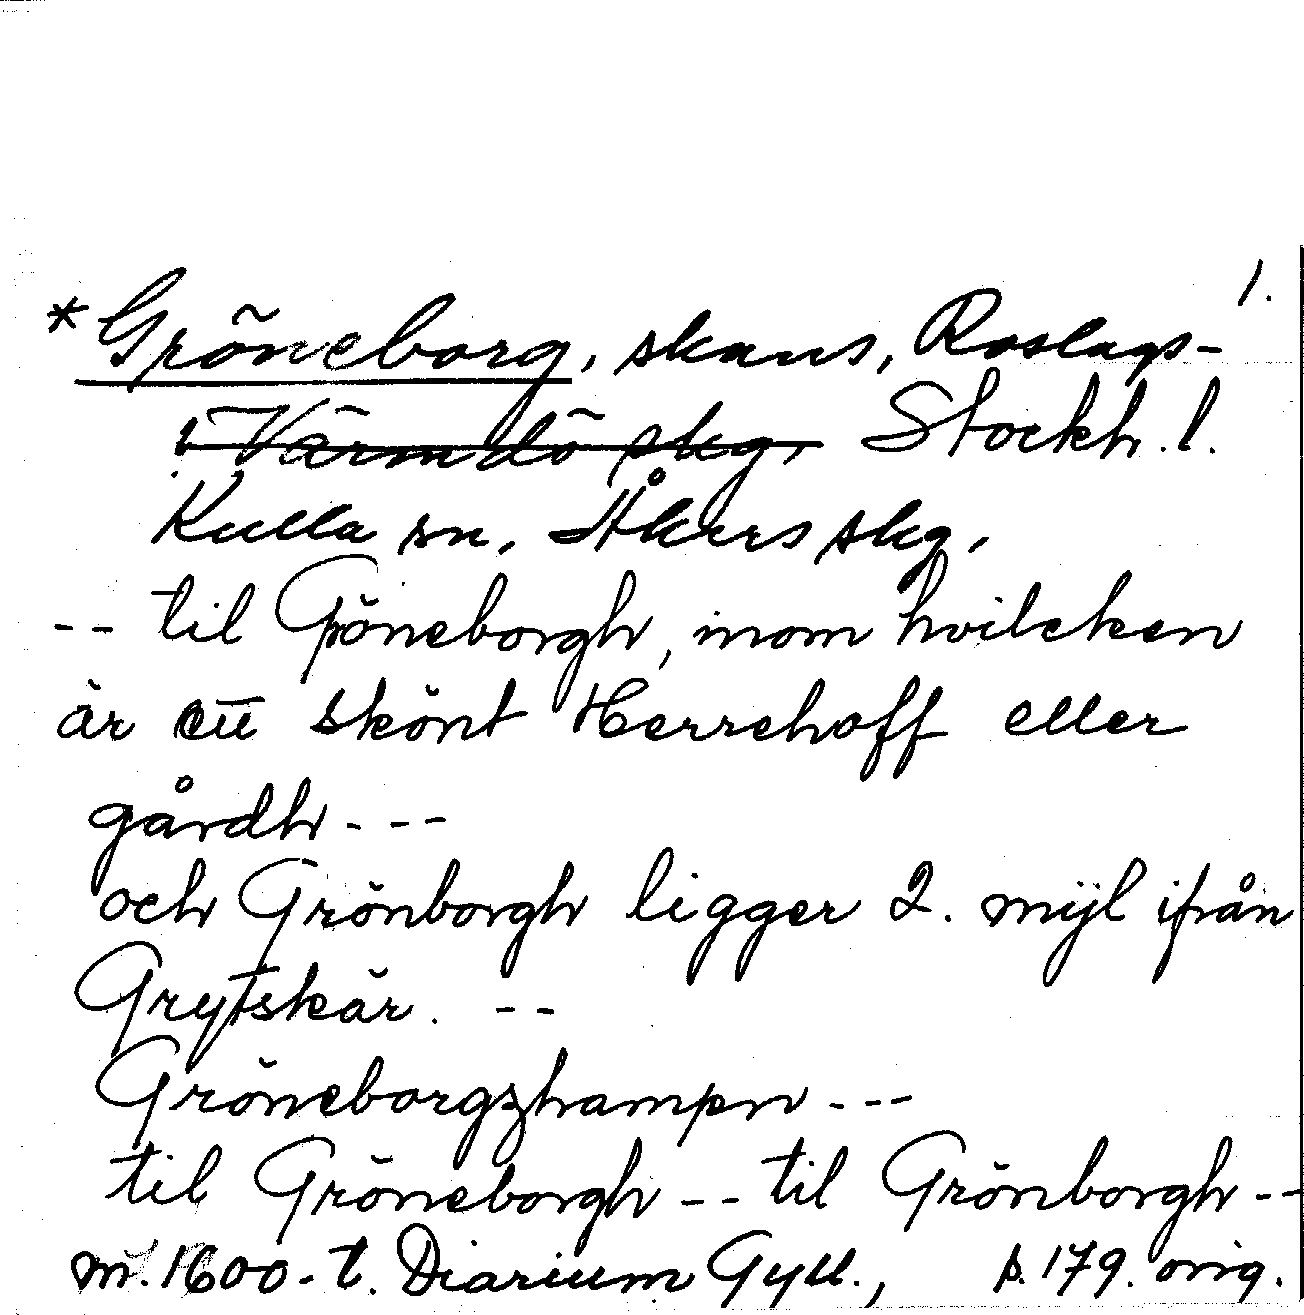 1.
*Gröneborg, skans, Roslags-
i Värmdö skg, Stockh. l.
Kulla sn, Åkers skg.
-- til Gröneborgh, inom hvilcken
är ett skönt Herrehoff eller
gårdh---
och Grönborgh ligger 2. mijl ifrån
Grytskär. --
Gröneborgzhampn---
til Gröneborgh -- til Grönborgh --
m. 1600-t. Diarium Gyll., s. 179. orig.